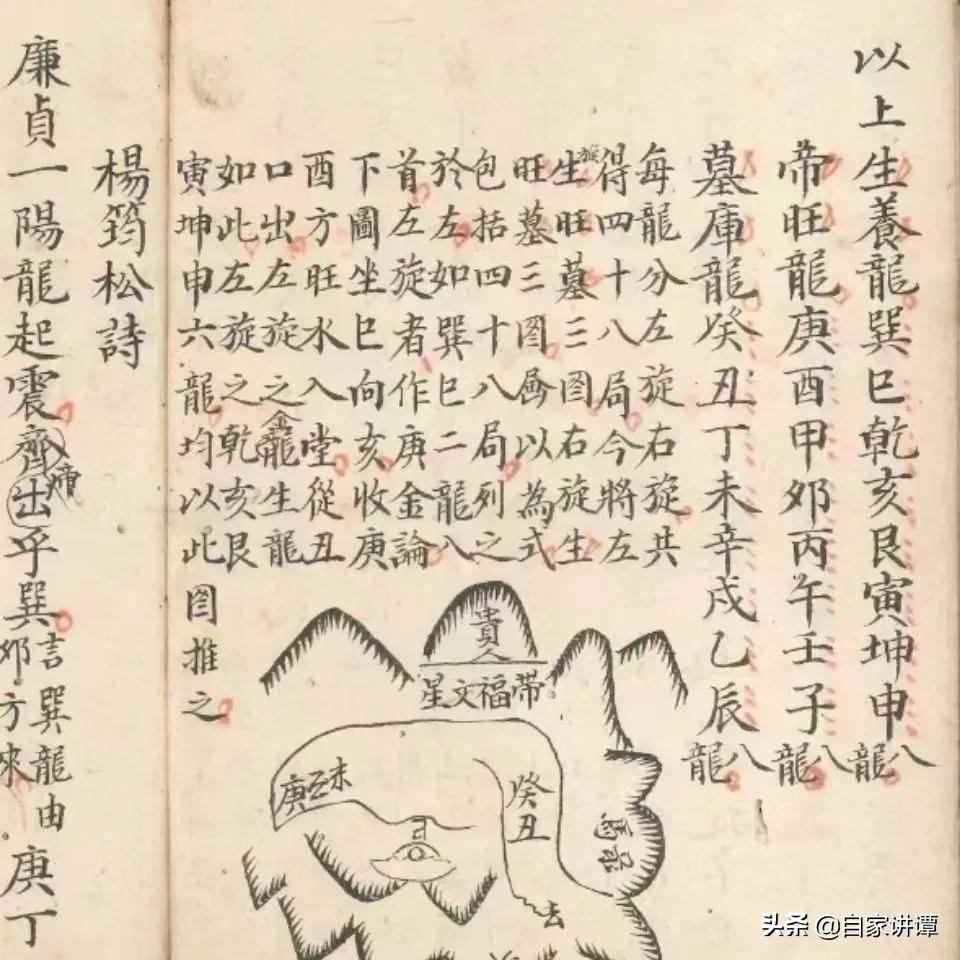 以上生養龍巽巳乾亥艮寅坤申八龍
帝旺龍庚酉甲卯丙午壬子八龍
墓庫龍癸丑丁未辛戌乙辰八龍
每龍分左旋右旋共
得四十八局今將左
旋生旺墓三图右旋生
旺墓三图以為式
包括四十八局列之
於左如巽巳二龍八
首左旋者作庚金論
下圖坐巳向亥收庚
酉方旺水入堂從丑
口出左旋之金龍生龍
如此左旋之乾亥艮
寅坤申六龍均以此图推之
貴人
帶福文星
癸丑
未
庚
馬
去
楊筠松詩
廉貞一陽龍起震齊出乎巽言巽龍由卯方來庚丁
头条 @自家讲谭